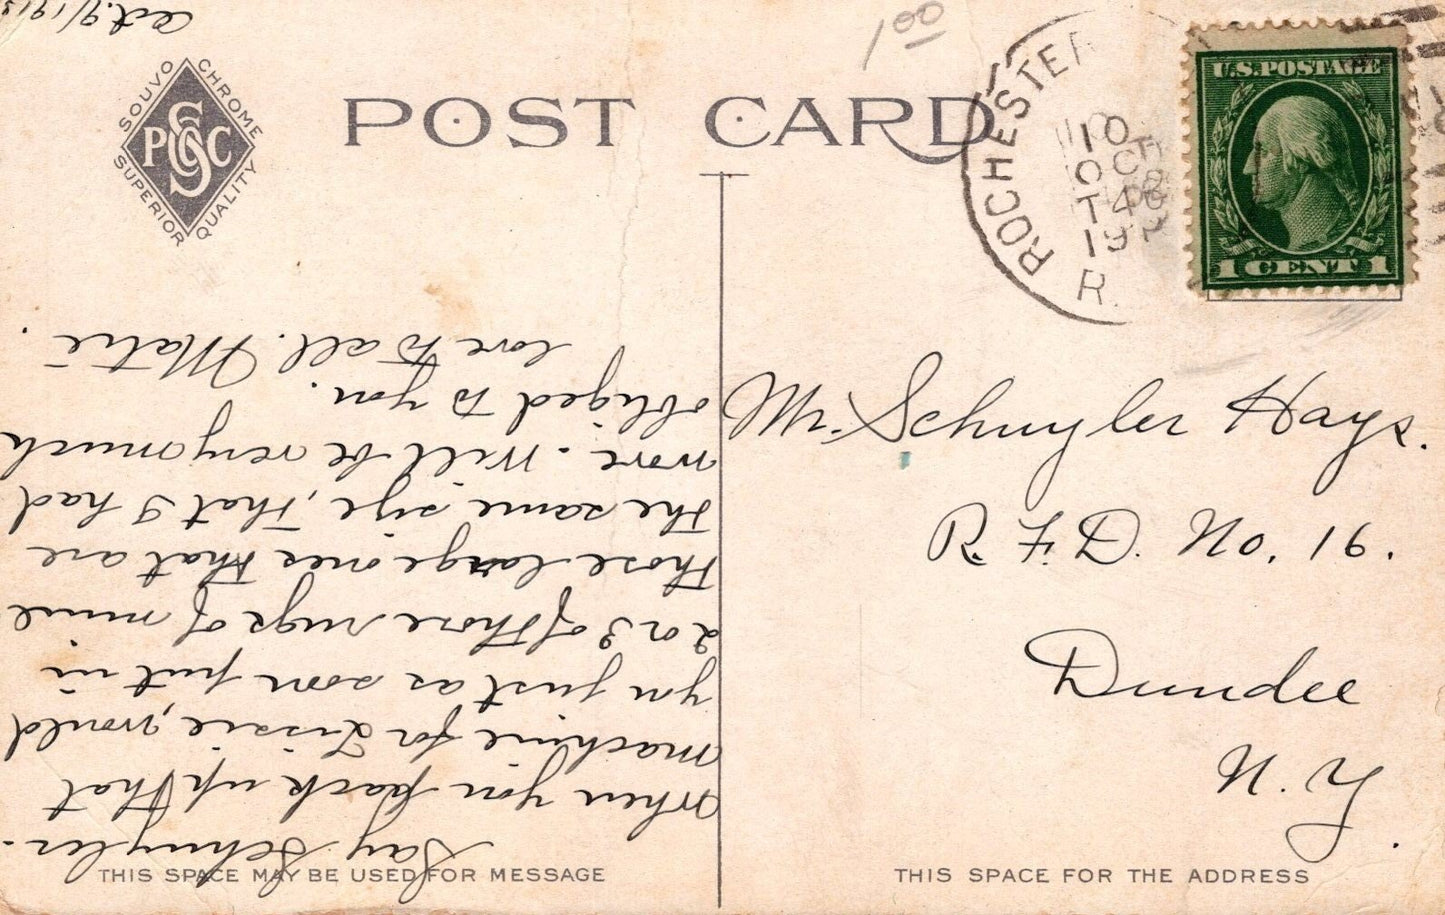 Oct. 9/1913
1.00
SOUVO CHROME
PSCC
SUPERIOR QUALITY
POST CARD
ROCHESTER
10
OCT
19
U.S. POSTAGE
1 CENT 1
Say Schuyler-
when you pack up that
machine for Lissie, would
you just as soon put in
2 or 3 of those rugs of mine
those large ones that are
the same size, that I had
wove. Will be very much
obliged to you.
love to all. Matie.
Mr. Schuyler Hays.
R. F. D. No. 16.
Dundee
N. Y.
THIS SPACE MAY BE USED FOR MESSAGE
THIS SPACE FOR THE ADDRESS